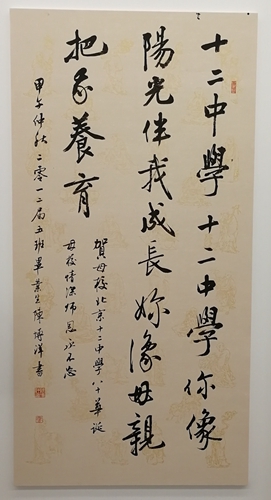 十二中學十二中學你像
陽光伴我成長妳像母親
把我養育
賀母校北京十二中學八十華誕
母校情深師恩永不忘
甲午仲秋二零一二届五班畢業生陳博洋書